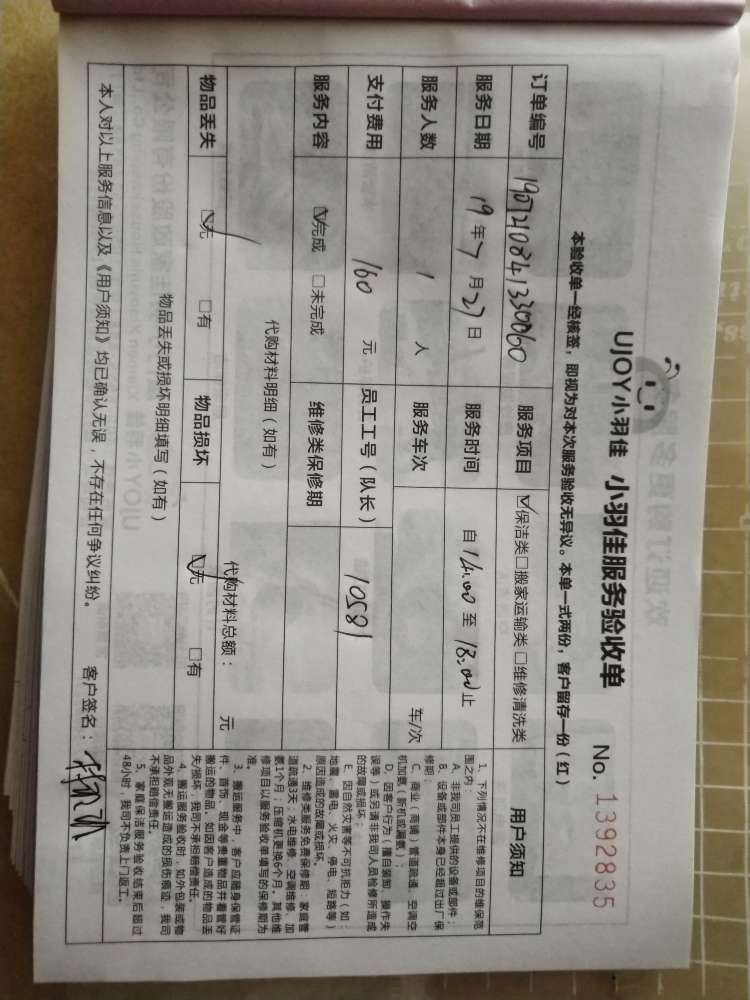 UJOY小羽佳 小羽佳服务验收单
No. 1392835
本验收单一经核签，即视为对本次服务验收无异议。本单一式两份，客户留存一份（红）
订单编号 1907210841330060 服务项目 ☑保洁类□搬家运输类□维修清洗类
服务日期 19年7月27日 服务时间 自14:00至18:00止
服务人数 1人 服务车次 车/次
支付费用 160元 员工工号（队长） 10581
服务内容 ☑完成 □未完成 维修类保修期
代购材料明细（如有） 代购材料总额： 元
物品丢失 ☑无 □有 物品损坏 ☑无 □有
物品丢失或损坏明细填写（如有）
本人对以上服务信息以及《用户须知》均已确认无误，不存在任何争议纠纷。 客户签名：
用户须知
1、下列情况不在维修项目的维保范
围之内：
A、非我司员工提供的设备或部件；
B、设备或部件本身已经超过出厂保
修期；
C、商业（商铺）管道疏通、空调空
机加氨（新机或漏氨）；
D、因客户行为（擅自装卸、操作失
误等）或另请非我司人员检修所造成
的故障或损坏；
E、因自然灾害等不可抗拒力（如：
地震、雷电、火灾、停电、短路等）
原因造成的故障或损坏。
2、维修类服务免费保修期：家庭管
道疏通3天；水电维修、空调维修、加
氨1个月；压缩机更换6个月。其他维
修项目以服务验收单填写的保修期为
准。
3、搬运服务中，客户应随身保管证
件、首饰、现金等贵重物品并看管好
搬运的物品，如因客户造成的物品丢
失/损坏，我司不承担赔偿责任。
4、搬运服务验收时，如外包装或物
品外观无搬运造成的损伤痕迹，我司
不承担赔偿责任。
5、家庭保洁服务验收结束后超过
48小时，我司不负责上门返工。